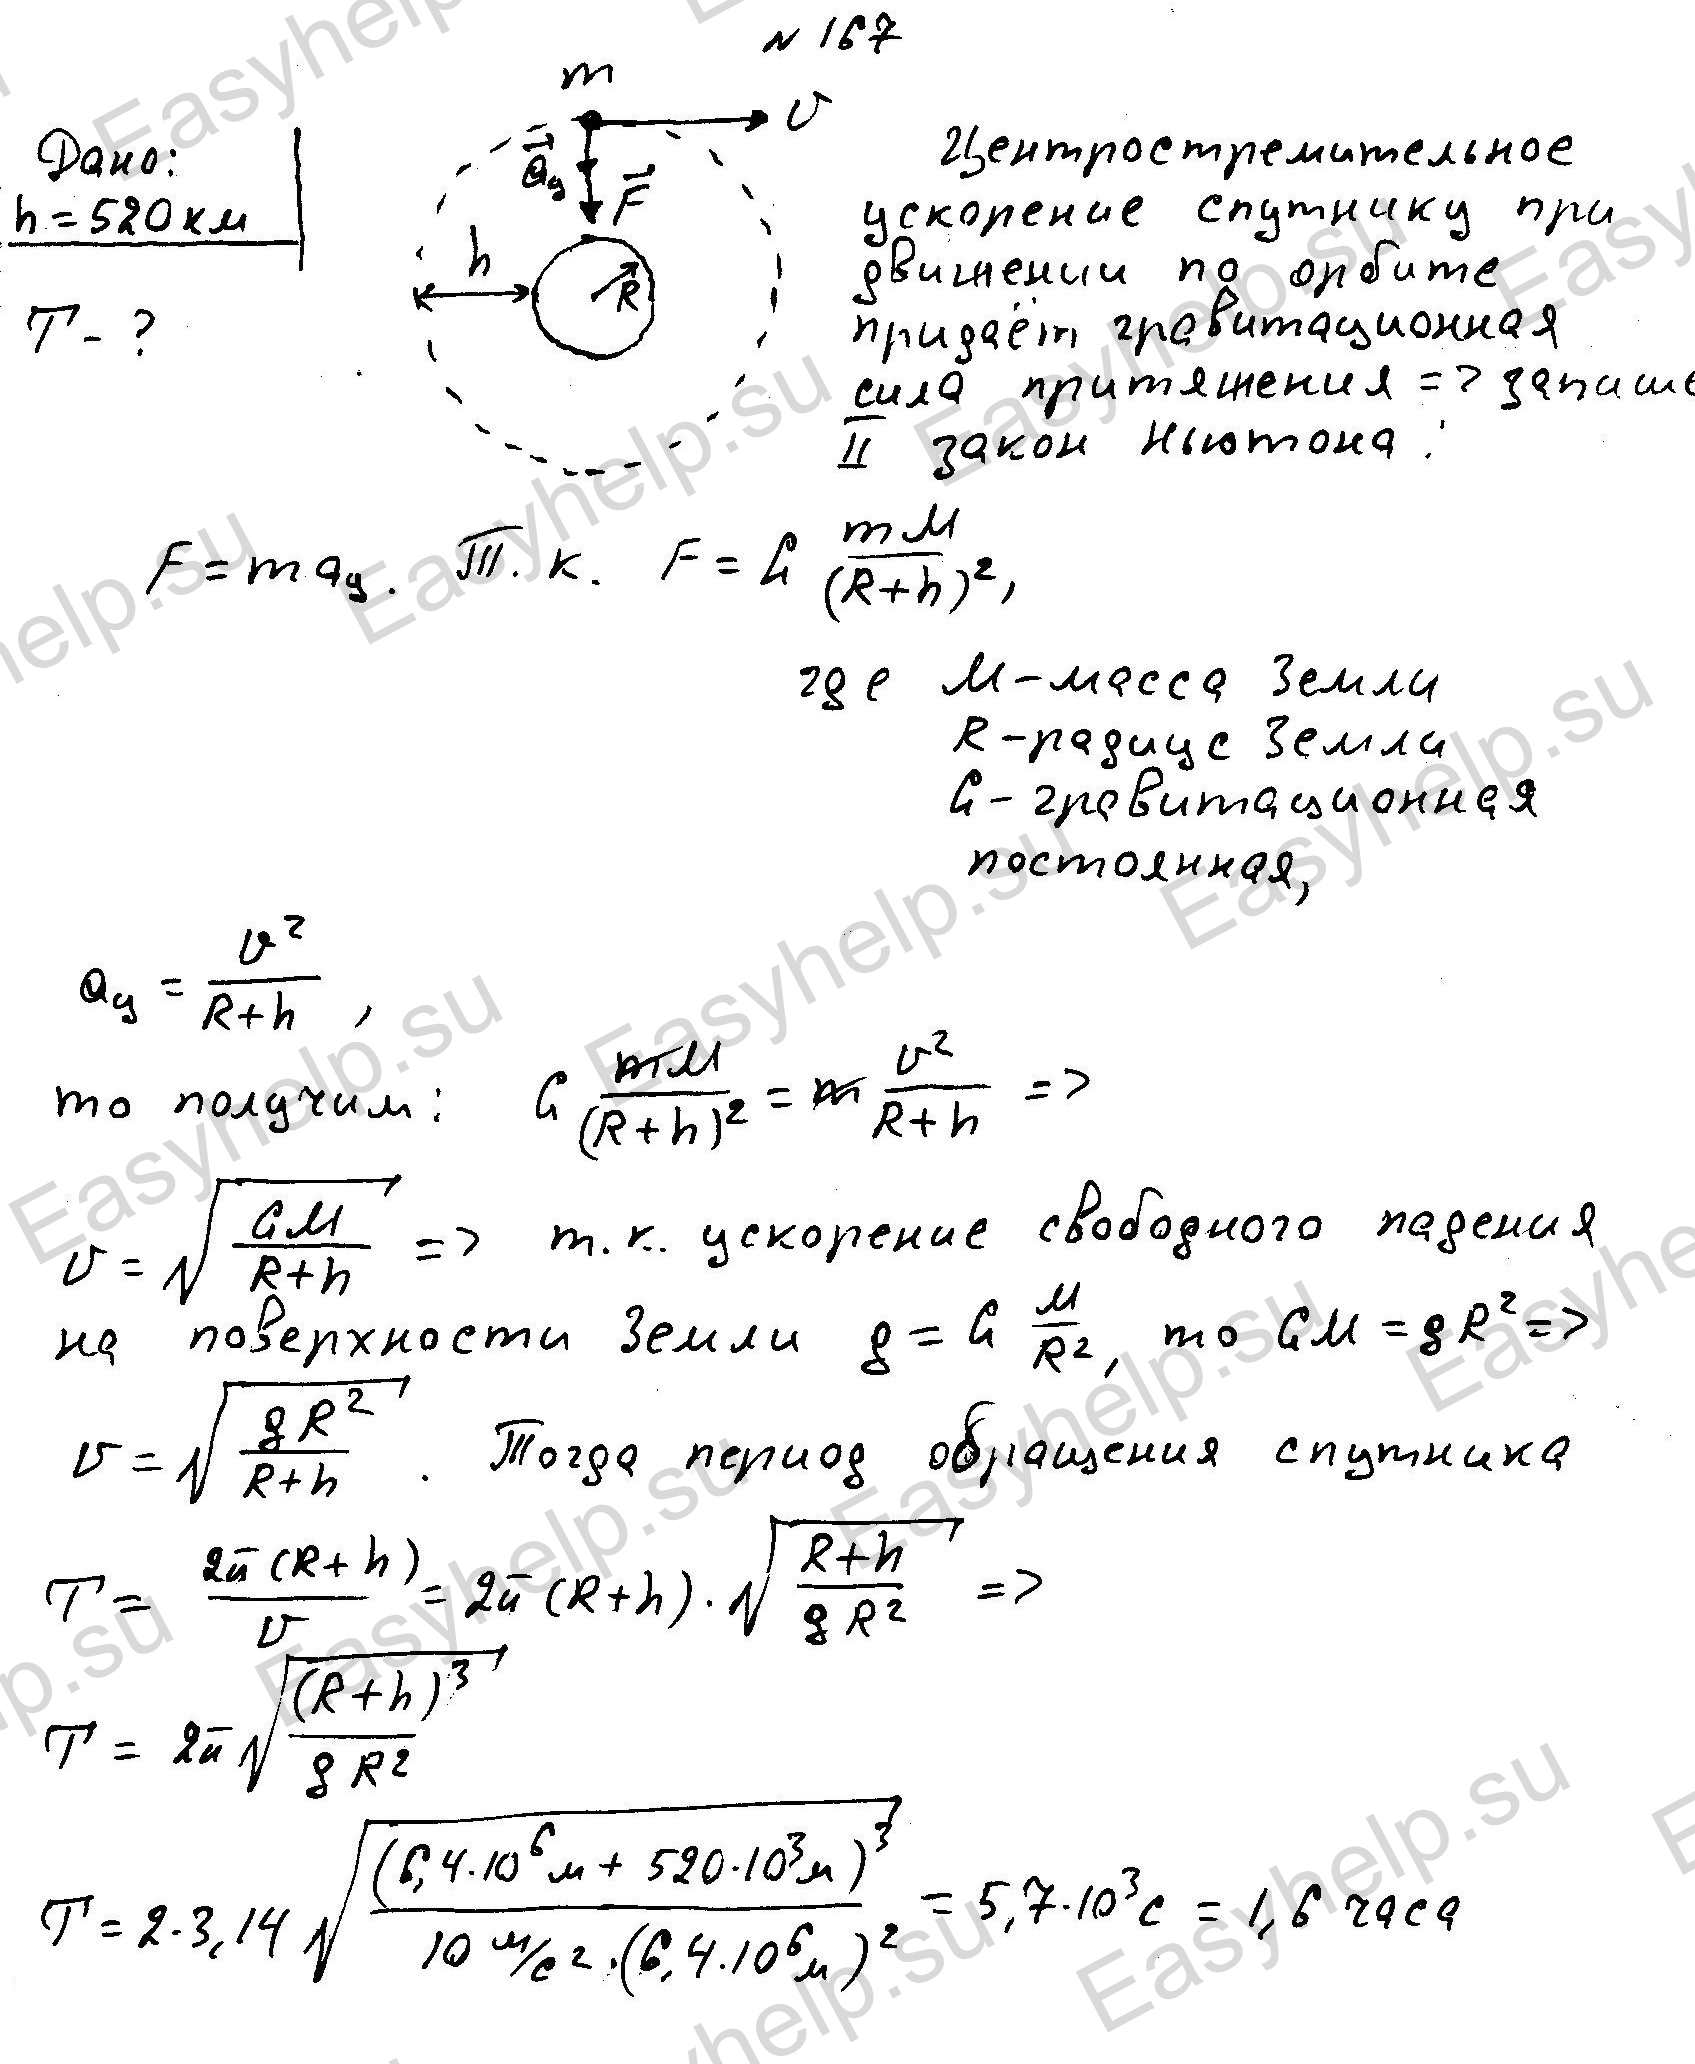 № 167
m
υ
Дано:
h = 520 км
T - ?
a⃗ц
F⃗
h
R
Центростремительное
ускорение спутнику при
движении по орбите
придаёт гравитационная
сила притяжения => запише
II закон Ньютона:
F = maц. Т.к. F = G mM/(R+h)²,
где M - масса Земли
R - радиус Земли
G - гравитационная
постоянная,
aц = υ²/(R+h),
то получим: G mM/(R+h)² = m υ²/(R+h) =>
υ = √(GM/(R+h)) => т.к. ускорение свободного падения
на поверхности Земли g = G M/R², то GM = gR² =>
υ = √(gR²/(R+h)). Тогда период обращения спутника
T = 2π(R+h)/υ = 2π(R+h)·√((R+h)/(gR²)) =>
T = 2π√((R+h)³/(gR²))
T = 2·3,14 √((6,4·10⁶м + 520·10³м)³/(10 м/с²·(6,4·10⁶м)²)) = 5,7·10³с = 1,6 часа
Easyhelp.su